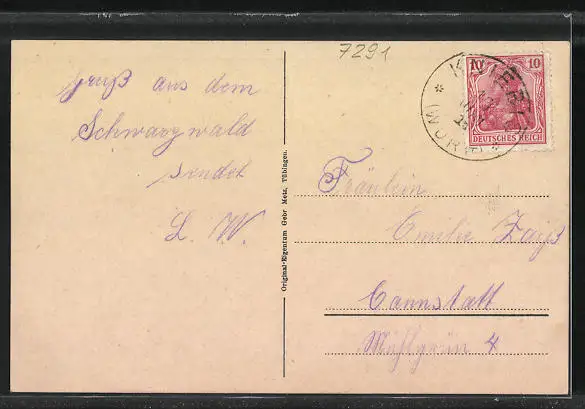 7291
Gruß aus dem
Schwarzwald
sendet
L. W.
Original-Eigentum Gebr Metz, Tübingen.
10 10
DEUTSCHES REICH
Fräulein
Emilie Zaiß
Cannstatt
Mühlgrün 4